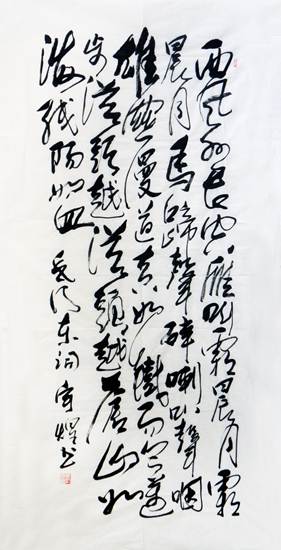 西风烈长空雁叫霜晨月霜
晨月马蹄声碎喇叭声咽
雄关漫道真如铁而今迈
步从头越从头越苍山如
海残阳如血 毛泽东词 书